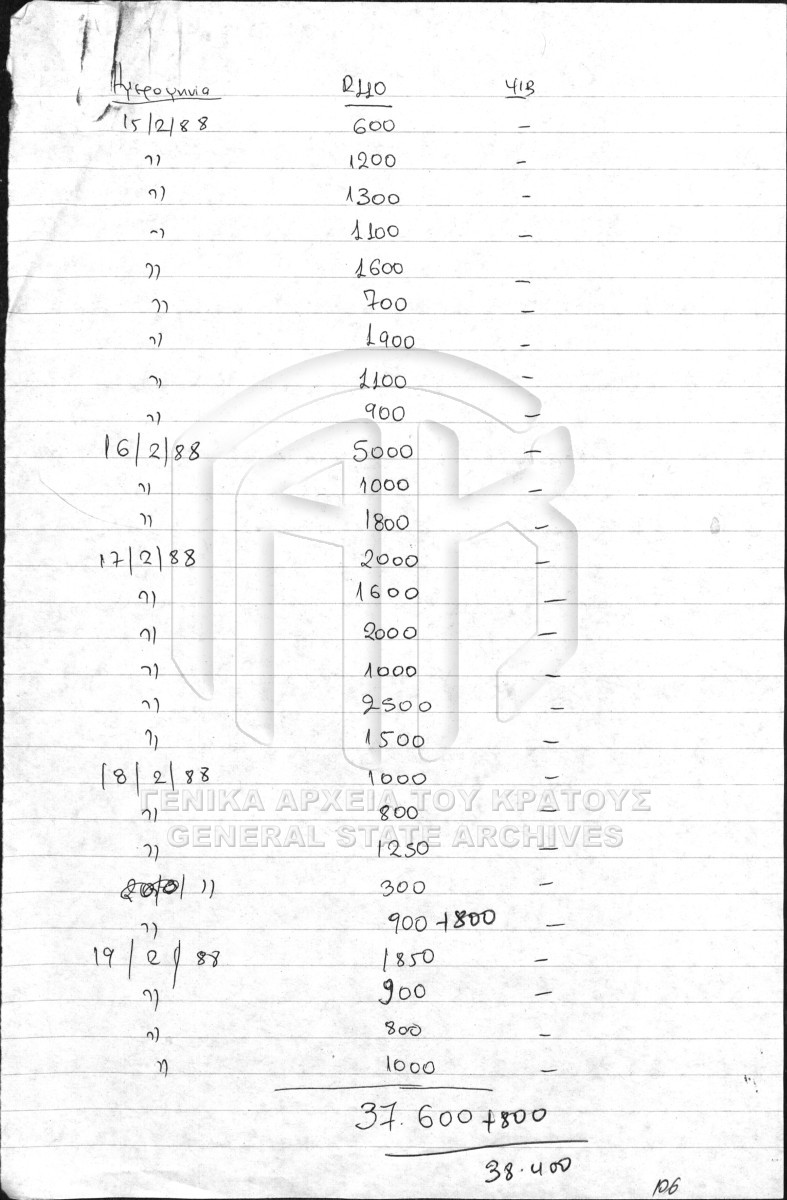 Ημερομηνία R110 Ψ/Β
15/2/88 600 —
〃 1200 —
〃 1300 —
〃 1100 —
〃 1600 —
〃 700 —
〃 1900 —
〃 1100 —
〃 900 —
16/2/88 5000 —
〃 1000 —
〃 1800 —
17/2/88 2000 —
〃 1600 —
〃 2000 —
〃 1000 —
〃 2500 —
〃 1500 —
18/2/88 1000 —
ΓΕΝΙΚΑ ΑΡΧΕΙΑ ΤΟΥ ΚΡΑΤΟΥΣ
〃 800 —
GENERAL STATE ARCHIVES
〃 1250 —
〃 300 —
〃 900+800 —
19/2/88 1850 —
〃 900 —
〃 800 —
〃 1000 —
37.600+800
38.400
106